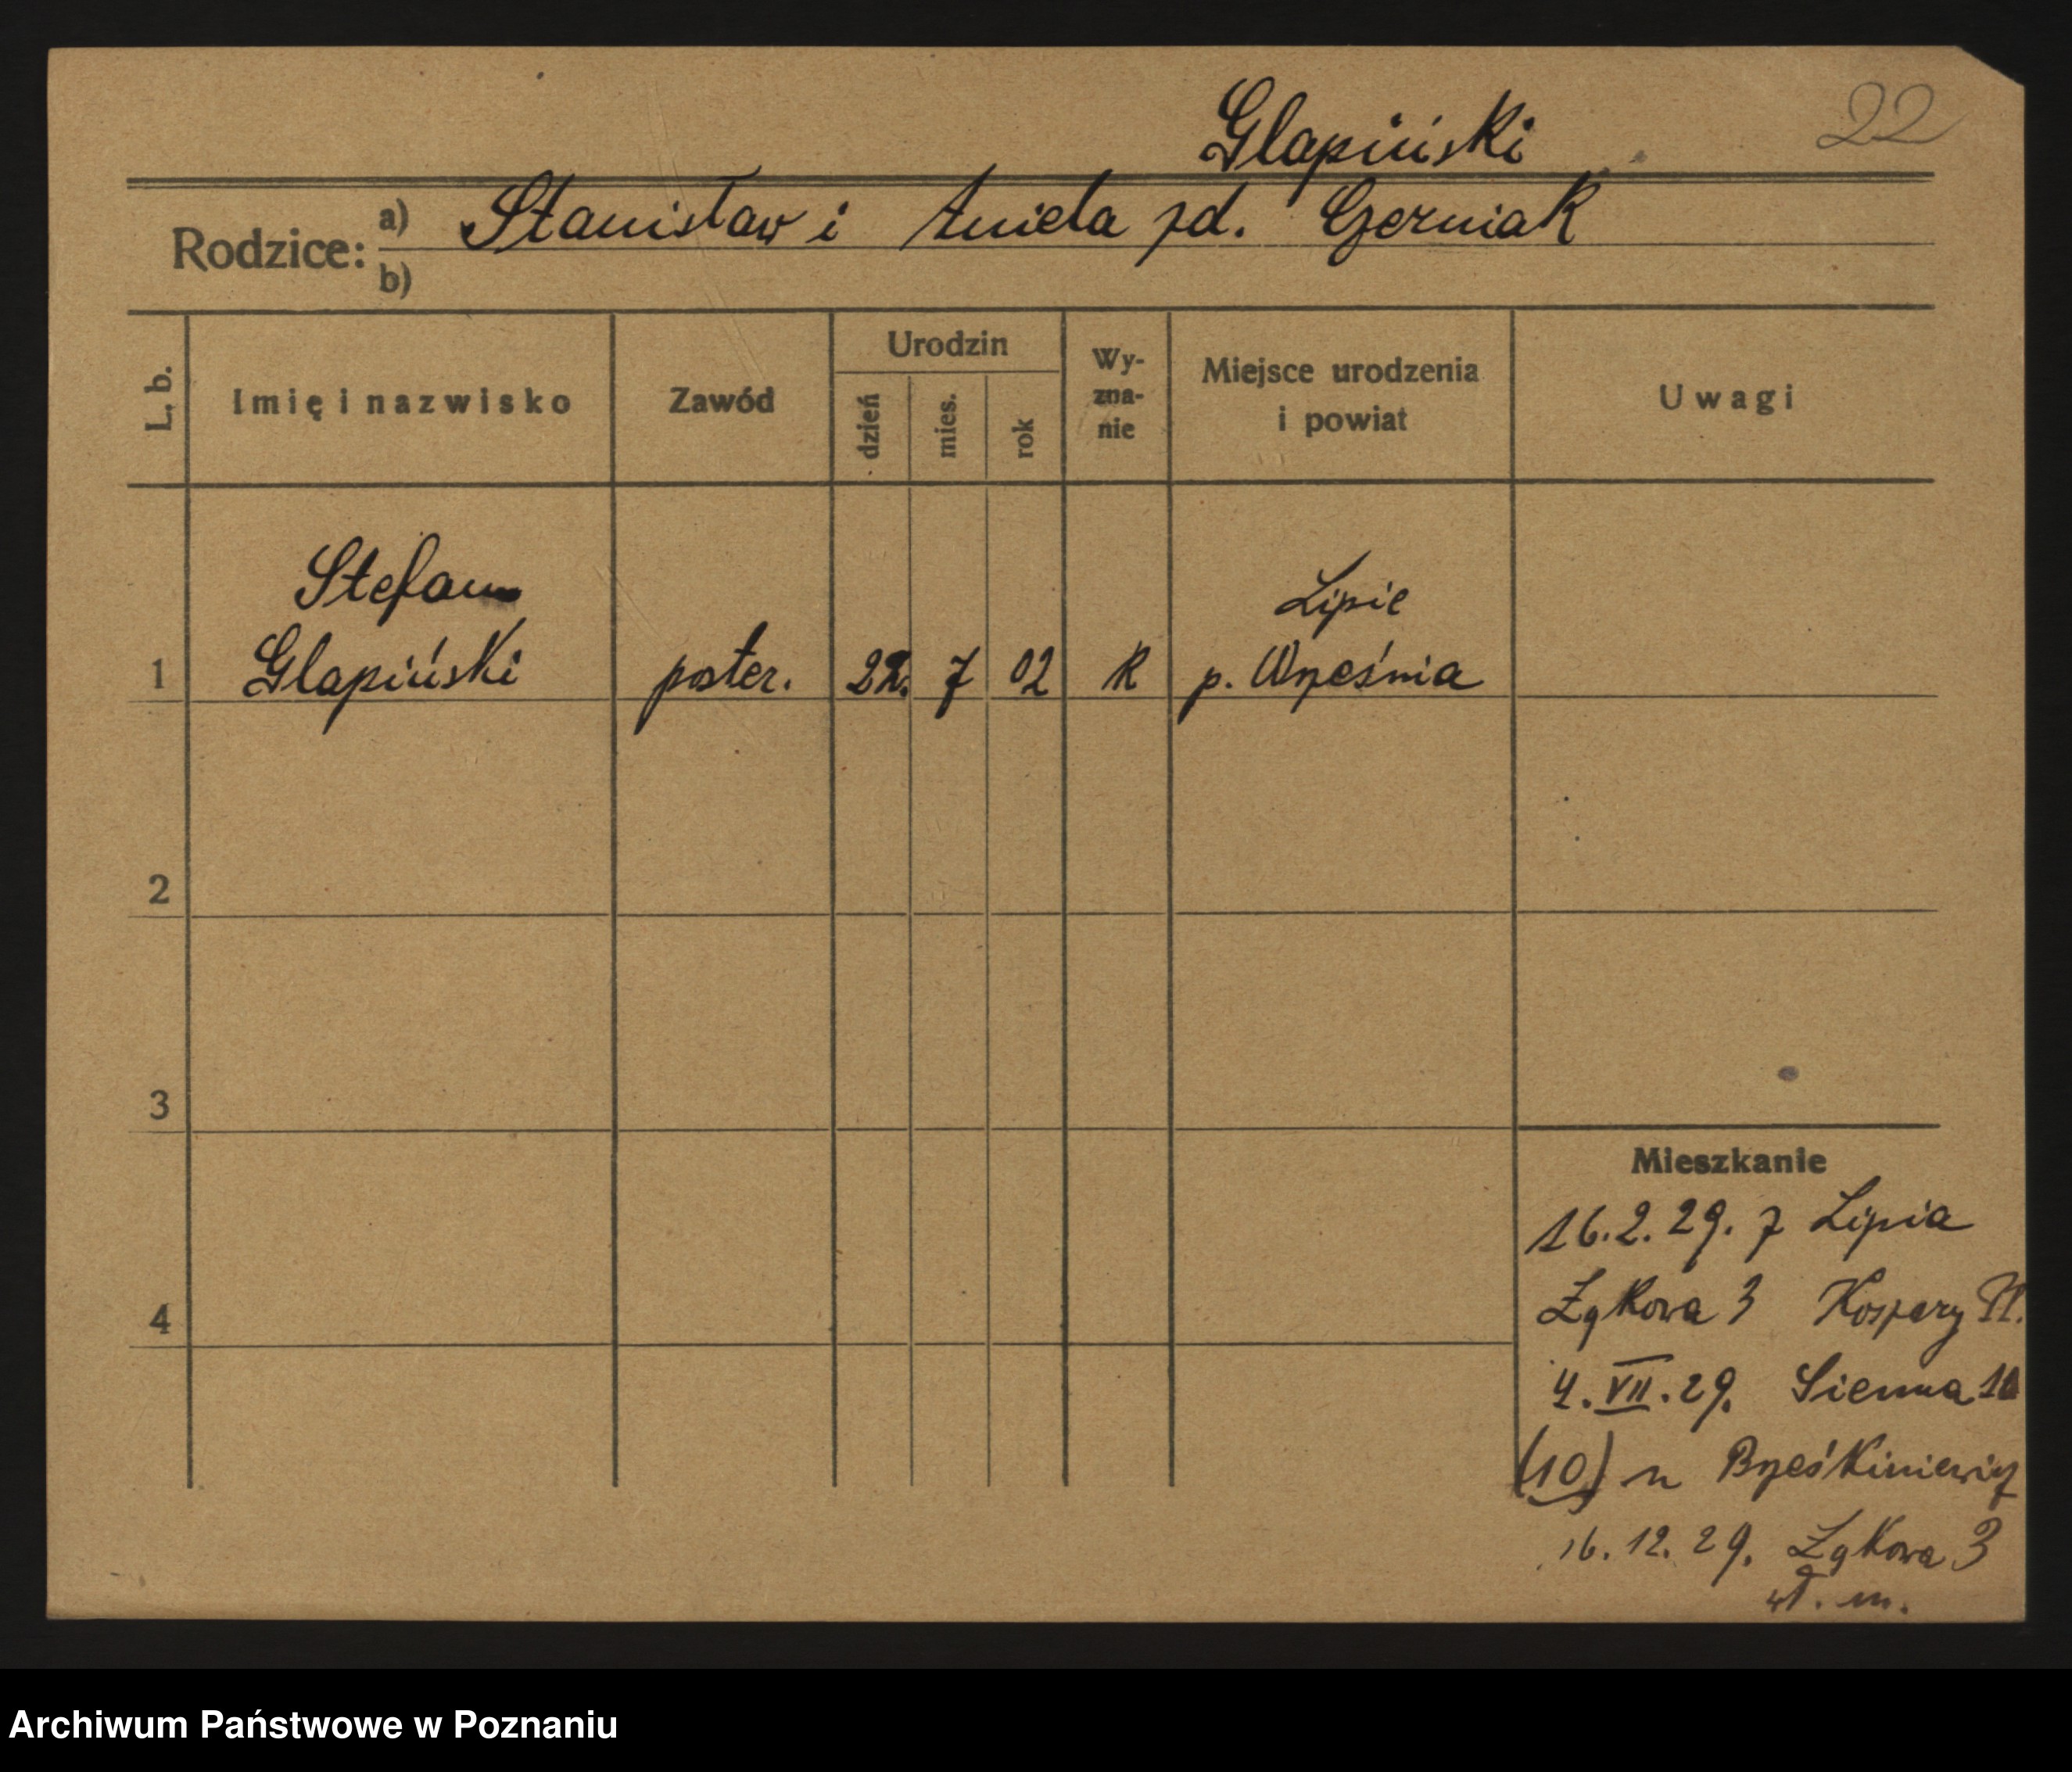 22
Glapiński
Rodzice: a) Stanisław i Aniela zd. Czerniak
b)
L. b.
Imię i nazwisko
Zawód
Urodzin
dzień
mies.
rok
Wy-
zna-
nie
Miejsce urodzenia
i powiat
Uwagi
Stefan
Lipie
1 Glapiński poster. 22. 7 02 R p. Września
2
3
4
Mieszkanie
16.2.29. z Lipia
Żąkowa 3 Koszary
4. VII. 29. Sienna 10
(10) u
16. 12. 29. Żąkowa 3
wł. m.
Archiwum Państwowe w Poznaniu